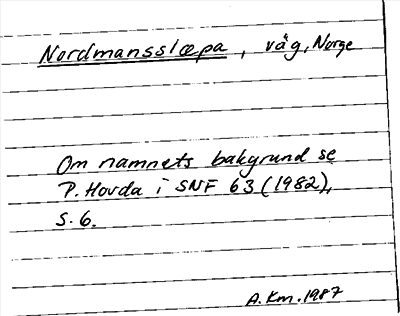 Nordmansslæpa, väg, Norge
Om namnets bakgrund se
P. Hovda i SNF 63 (1982),
s. 6.
A. Km. 1987